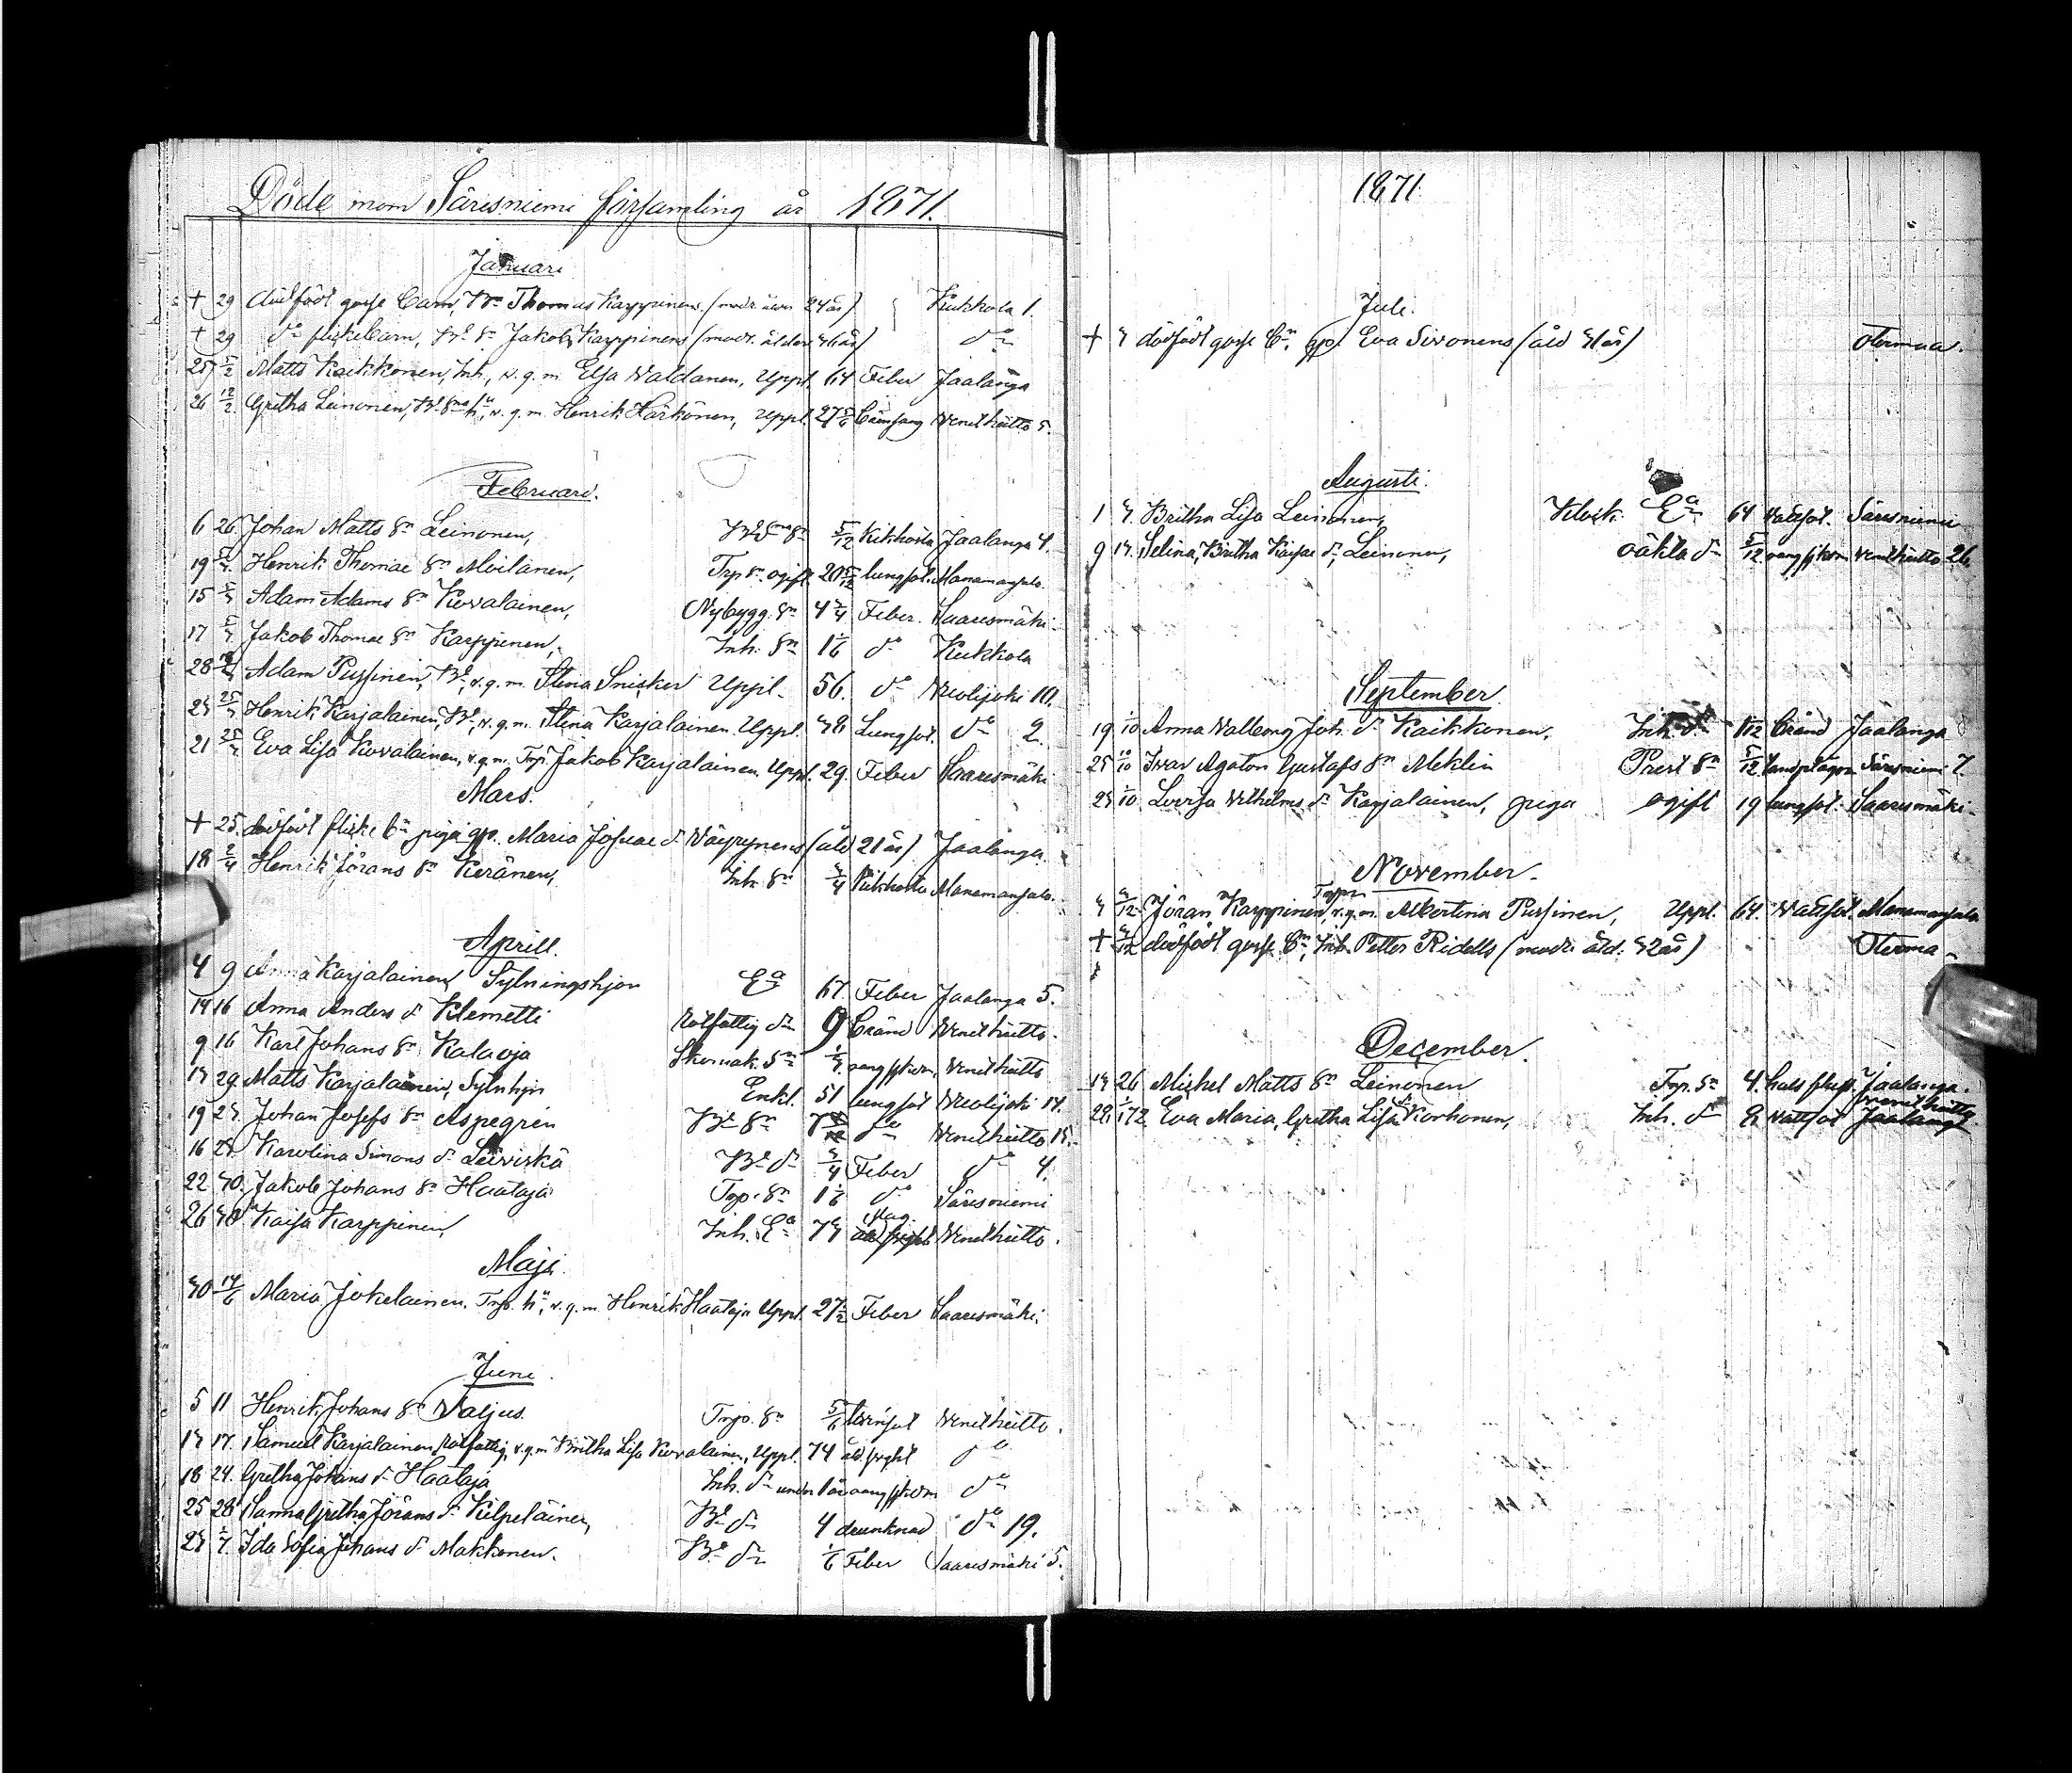 Döde inom Säresniemi församling år 1871.
Januari
† 29 dödfödt gosse barn, Thomas Karppinens (modr. ålder 24 år) Kukkola 1.
† 29 do flickebarn, Bd Sn Jakob Karppinens (modr. ålder 36 år) do
25 5/2 Matts Kaikkonen, Inh., v. g. m. Elsa Valdanen, Uppl. 64 Feber Jaalanga
26 12/2 Gretha Leinonen, v. g. m. Henrik Härkönen, Uppl. 27 5/6 barnsäng Wenetheitto 5.
Februari.
6 26 Johan Matts Sn Leinonen, 5/12 Kikhosta Jaalanga 4.
19 Henrik Thomae Sn Moilanen, Trp Sn ogift 20 5/12 lungsot. Manamansalo
15 5/3 Adam Adams Sn Kovalainen, Nybygg. Sn 4 3/4 Feber. Saaresmäki
17 5/3 Jakob Thomae Sn Karppinen, Inh. Sn 1 1/6 do Kukkola
28 Adam Pussinen, Bd, v. g. m. Stina Snicker Uppl. 56. do Neolijoki 10.
23 25/3 Henrik Karjalainen, Bd, v. g. m. Stina Karjalainen Uppl. 38 Lungsot. do 2.
21 25/3 Eva Lisa Kovalainen, v. g. m. Trp. Jakob Karjalainen Uppl. 29. Feber Saaresmäki
Mars.
† 25. dödfödt flicke bn piga gp. Maria Josuae dr Väyrynens (åld 21 år) Jaalanga
18 2/4 Henrik Jörans Sn Keränen, Inh. Sn 3/4 Kikhosta Manamansalo.
Aprill.
4 9 Anna Karjalainen, Sytningshjon Ea 67. Feber Jaalanga 5.
14 16 Anna Anders dr Klemetti Rotfattig dr 9 bränd Wenetheitto.
9 16 Karl Johans Sn Kalaoja Skomak. Sn 1/3 oang. sjkdom. Wenetheitto
13 29. Matts Karjalainen, Sytnhjn Enkl. 51 lungsot Neolijoki 14.
19 23. Johan Josefs Sn Aspegren Bd Sn do Wenetheitto 15.
16 23. Karolina Simons dr Leiviskä Bd dr 3/4 Feber do 4.
22 30. Jakob Johans Sn Haataja Trp. Sn 1 1/6 do Säresniemi
26 30 Kaisa Karppinen, Inh. Ea 73 Slag Wenetheitto.
Maji.
30 14/6 Maria Jokelainen, Trp. hu, v. g. m. Henrik Haataja Uppl. 27 1/2 Feber Saaresmäki.
Juni.
5 11 Henrik Johans Sn Valjus. Trp. Sn 5/6 Wenetheitto.
13 17. Samuel Karjalainen, Rotfattig, v. g. m. Britha Lisa Kovalainen, Uppl. 74 åld. svaght do
18 24. Gretha Johans dr Haataja Inh. dr under 1 år oang sjkdom do
25 28 Sanna Gretha Jörans dr Kilpeläinen, Bd dr 4 drunknad do 19.
23 1/7. Ida Sofia Johans dr Makkonen. Bd dr 1/6 Feber Saaresmäki 5.
1871.
Juli.
† 3 dödfödt gosse bn, gp. Eva Sironens (åld 31 år) Oterma.
Augusti.
1 3. Britha Lisa Leinonen, Klock. Ea 64 Vattsot. Säresniemi
9 13. Selina, Britha Kaisae dr, Leinonen, oäkta dr 5/12 oang sjkom Wenetheitto 26.
September
19 1/10 Anna Valborg Joh. dr Kaikkonen, Inh. dr bränd Jaalanga
25 10/10 Ivar Agaton Gustafs Sn Meklin Prest Sn 5/12 landplågor Säresniemi 7.
23 1/10. Lovisa Vilhelms dr Karjalainen, piga ogift 19 lungsot. Saaresmäki
November.
3 3/12 Jöran Karppinen, Torpn v. g. m. Albertina Pussinen, Uppl. 64. Vattsot. Manamansalo
† dödfödt gosse bn, Inh. Petter Ridells (modr. åld. 32 år) Oterma
December.
13 26 Mickel Matts Sn Leinonen Trp. Sn 4. Jaalanga.
28 1/1 72 Eva Maria, Gretha Lisae dr Korhonen, Inh. dr 8 Vattsot Jaalanga Wenetheitto